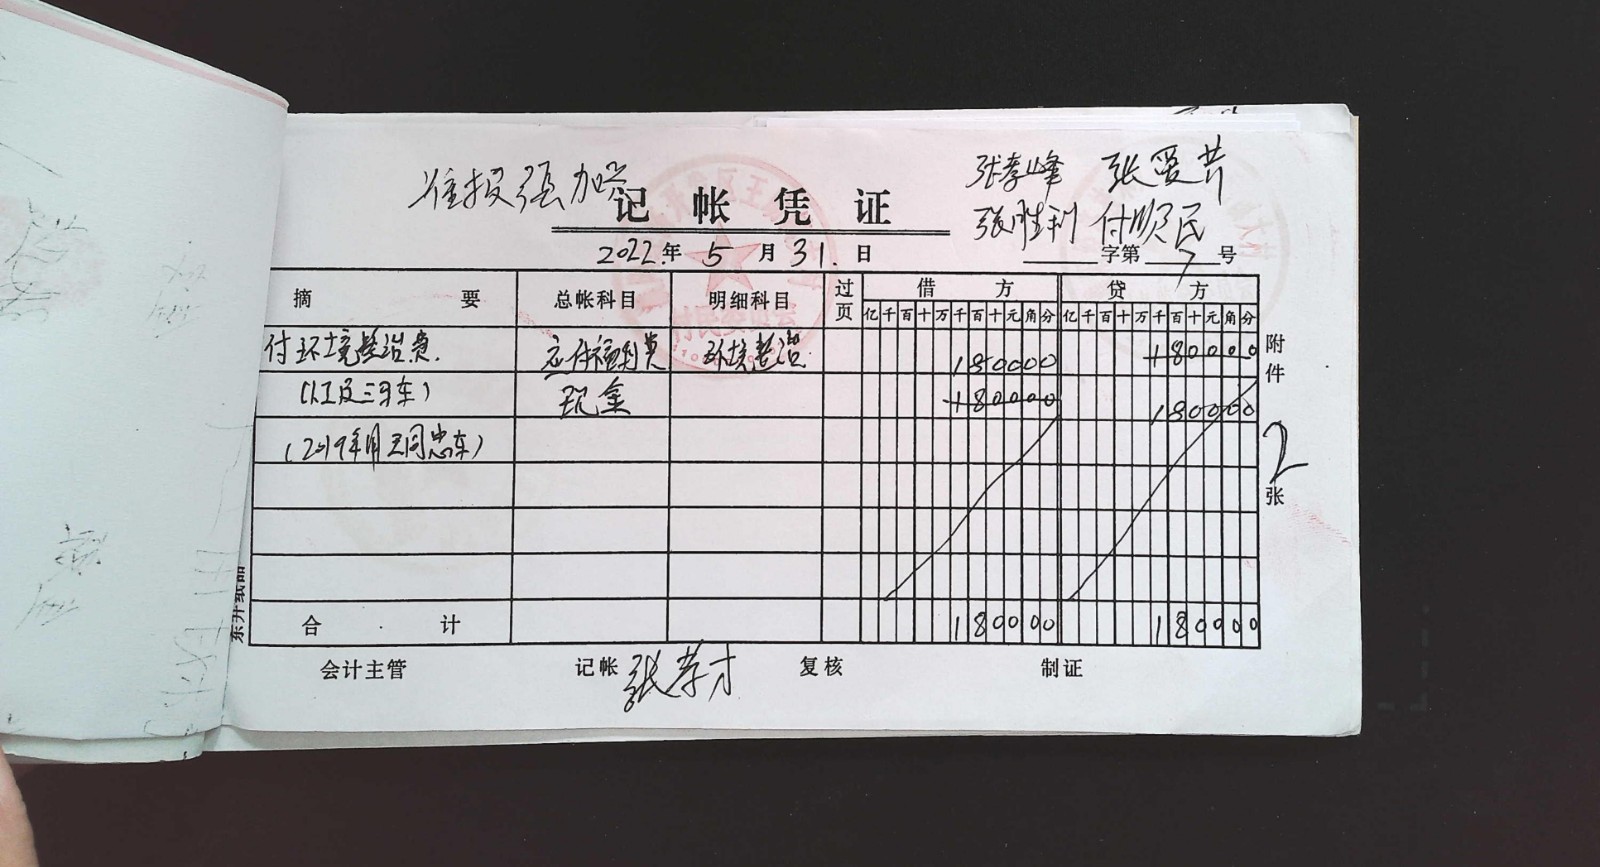 准报 张加
张孝峰 张爱芹
记帐凭证
张胜利 付顺民
2022年5月31日
字第7号
摘要 总帐科目 明细科目 过页 借方 贷方
亿千百十万千百十元角分 亿千百十万千百十元角分
付环境整治费 应付福利费 环境整治 180000 180000
(人工及三马车) 现金 180000 180000
(2019年 月 忠车)
附件2张
合计 180000 180000
会计主管 记帐 张孝才 复核 制证
东升纸品
村民委员会